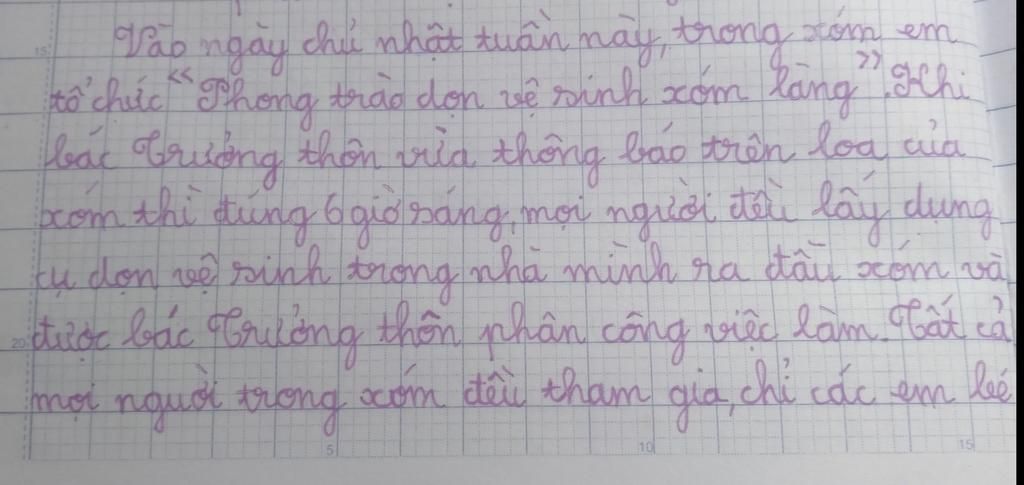 Vào ngày chủ nhật tuần này, trong xóm em
tổ chức "Phong trào dọn vệ sinh xóm làng". Khi
bác Trưởng thôn vừa thông báo trên loa của
xóm thì đúng 6 giờ sáng, mọi người đều lấy dụng
cụ dọn vệ sinh trong nhà mình ra đầu xóm và
được bác Trưởng thôn phân công việc làm. Tất cả
mọi người trong xóm đều tham gia, chỉ các em bé
5 10 15 20